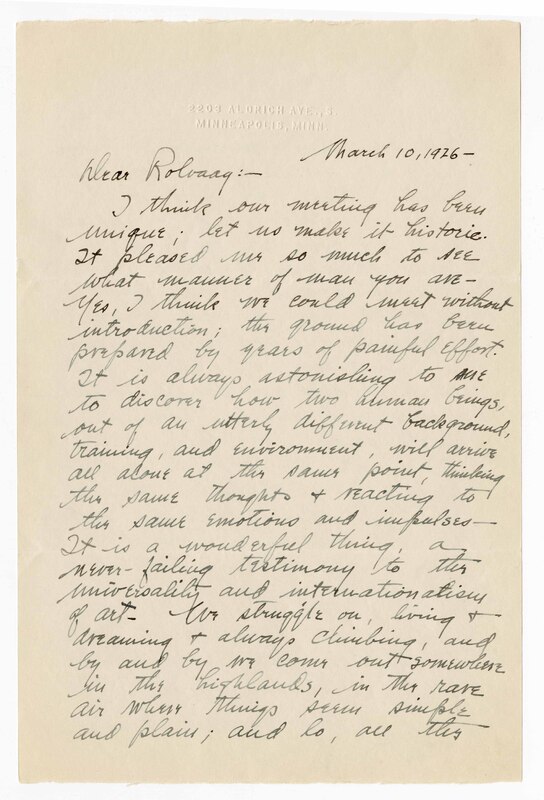 2203 ALDRICH AVE., S.
MINNEAPOLIS, MINN.
March 10, 1926 —
Dear Rolvaag:—
I think our meeting has been
unique; let us make it historic.
It pleased me so much to see
what manner of man you are —
Yes, I think we could meet without
introduction; the ground has been
prepared by years of painful effort.
It is always astonishing to me
to discover how two human beings,
out of an utterly different background,
training, and environment, will arrive
all alone at the same point, thinking
the same thoughts & reacting to
the same emotions and impulses —
It is a wonderful thing, a
never-failing testimony to the
universality and internationalism
of art — We struggle on, living &
dreaming & always climbing, and
by and by we come out somewhere
in the highlands, in the rare
air where things seem simple
and plain; and lo, all the